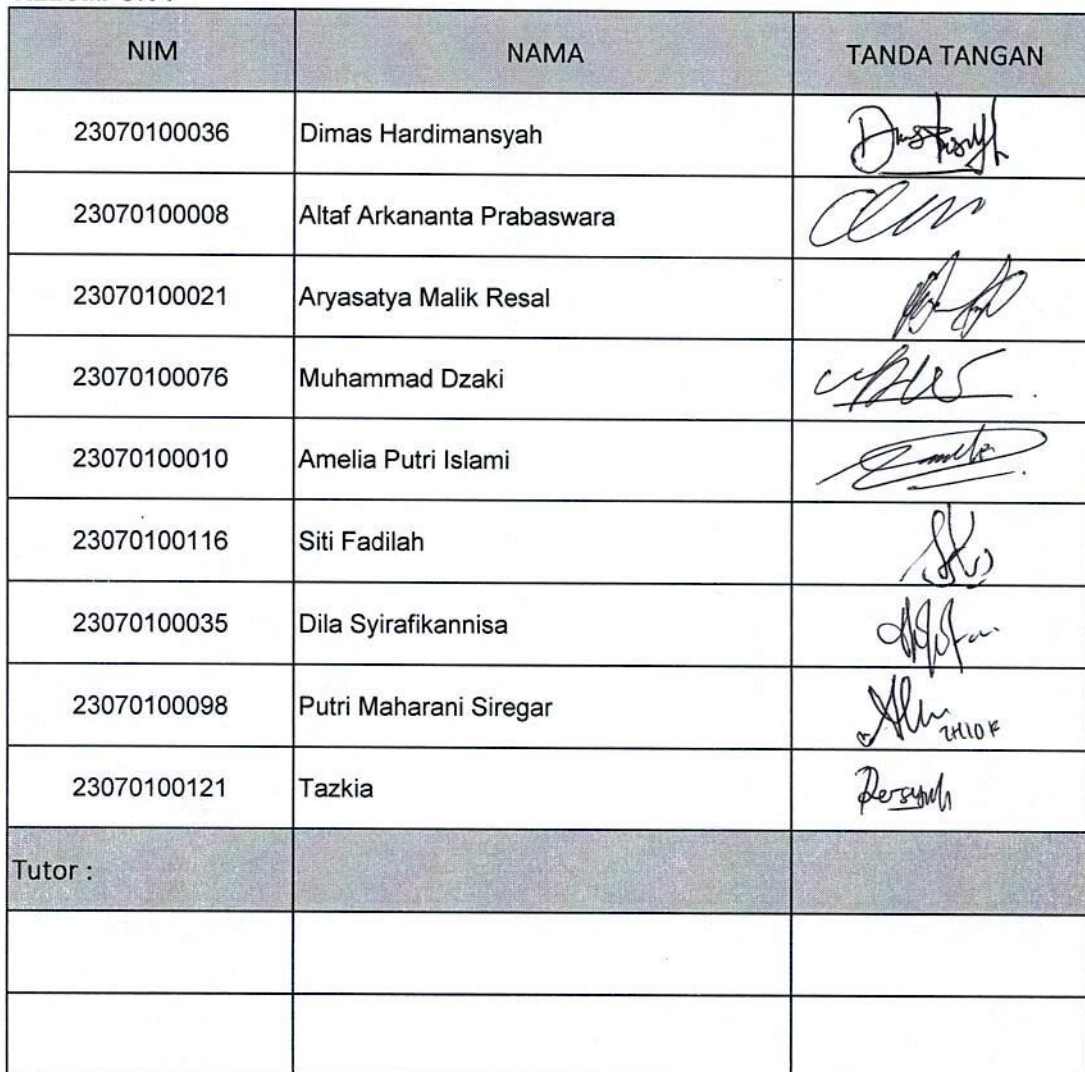 NIM NAMA TANDA TANGAN
23070100036 Dimas Hardimansyah
23070100008 Altaf Arkananta Prabaswara
23070100021 Aryasatya Malik Resal
23070100076 Muhammad Dzaki
23070100010 Amelia Putri Islami
23070100116 Siti Fadilah
23070100035 Dila Syirafikannisa
23070100098 Putri Maharani Siregar
23070100121 Tazkia
Tutor :